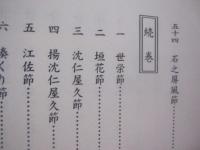 五十四 石之屏風節
続巻
一 世栄節
二 垣花節
三 沈仁屋久節
四 揚沈仁屋久節
五 江佐節
六 湊くり節